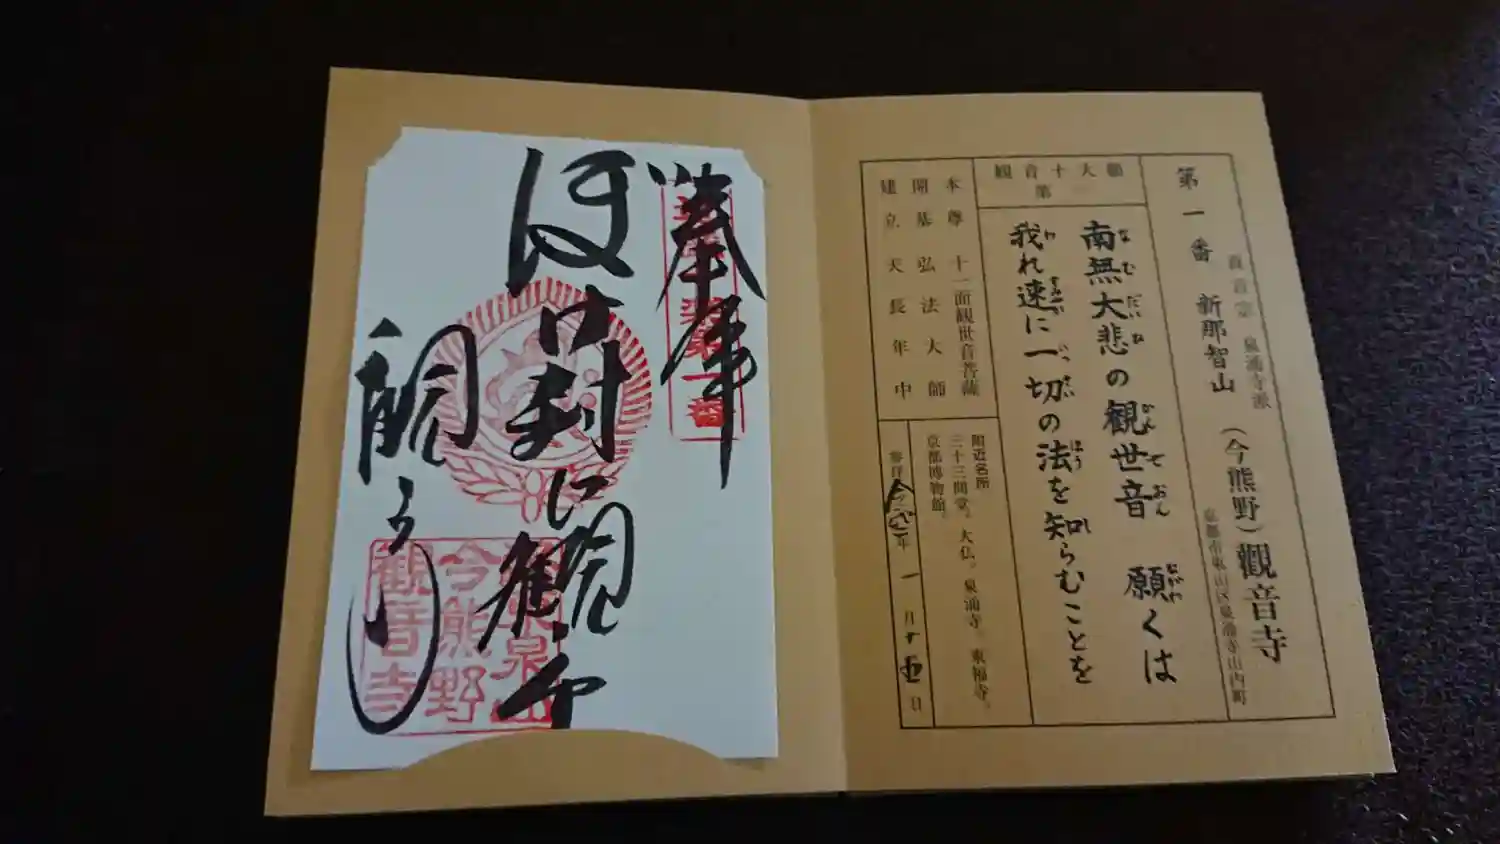 第一番 新那智山 (今熊野)観音寺
真言宗 泉涌寺派
京都市東山区泉涌寺山内町
観音十大願
第
南無大悲の観世音 願くは
我れ速に一切の法を知らむことを
本尊 十一面観世音菩薩
開基 弘法大師
建立 天長年中
附近名所
三十三間堂。大仏。泉涌寺。東福寺。
京都博物館。
年一月十五日
奉拝
ぼけ封に観
観音寺
今熊野